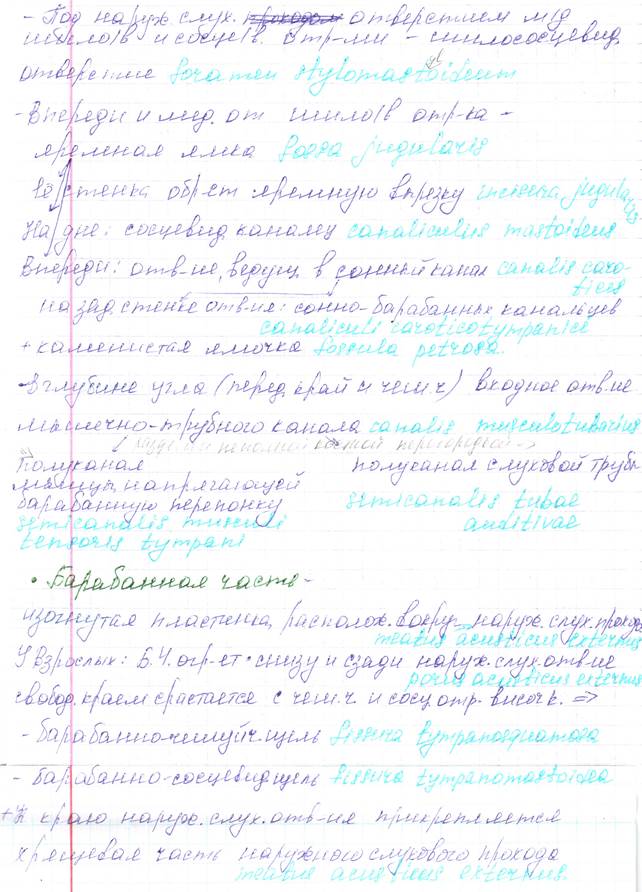 - Под наруж. слух. проходом отверстием м/д
шилов и сосцев. отр-ми - шилососцевид.
отверстие foramen stylomastoideum
- Впереди и мед. от шилов отр-ка -
яремная ямка fossa jugularis
стенка обр-ет яремную вырезку incisura jugularis
На дне: сосцевид. каналец canaliculus mastoideus
Впереди: отв-ие, ведущ. в сонный канал canalis caro-
ticus
на зад. стенке отв-ия: сонно-барабанных канальцев
canaliculi caroticotympanici
+ каменистая ямочка fossula petrosa.
- В глубине угла (перед. край и чеш. ч) входное отв-ие
мышечно-трубного канала canalis musculotubarius
неполной костной перегородкой
полуканал полуканал слуховой трубы
мышцы, напрягающей
барабанную перепонку semicanalis tubae
semicanalis musculi auditivae
tensoris tympani
• Барабанная часть -
изогнутая пластинка, располож. вокруг наруж. слух. прохода
meatus acusticus externus
У взрослых: Б.Ч. огр-ет снизу и сзади наруж. слух. отв-ие
porus acusticus externus
свобод. краем срастается с чеш. ч. и сосц. отр. височ к. =>
- барабанно-чешуйч. щель fissura tympanosquamosa
- барабанно-сосцевид щель fissura tympanomastoidea
+ К краю наруж. слух. отв-ия прикрепляется
хрящевая часть наружного слухового прохода
meatus acusticus externus.